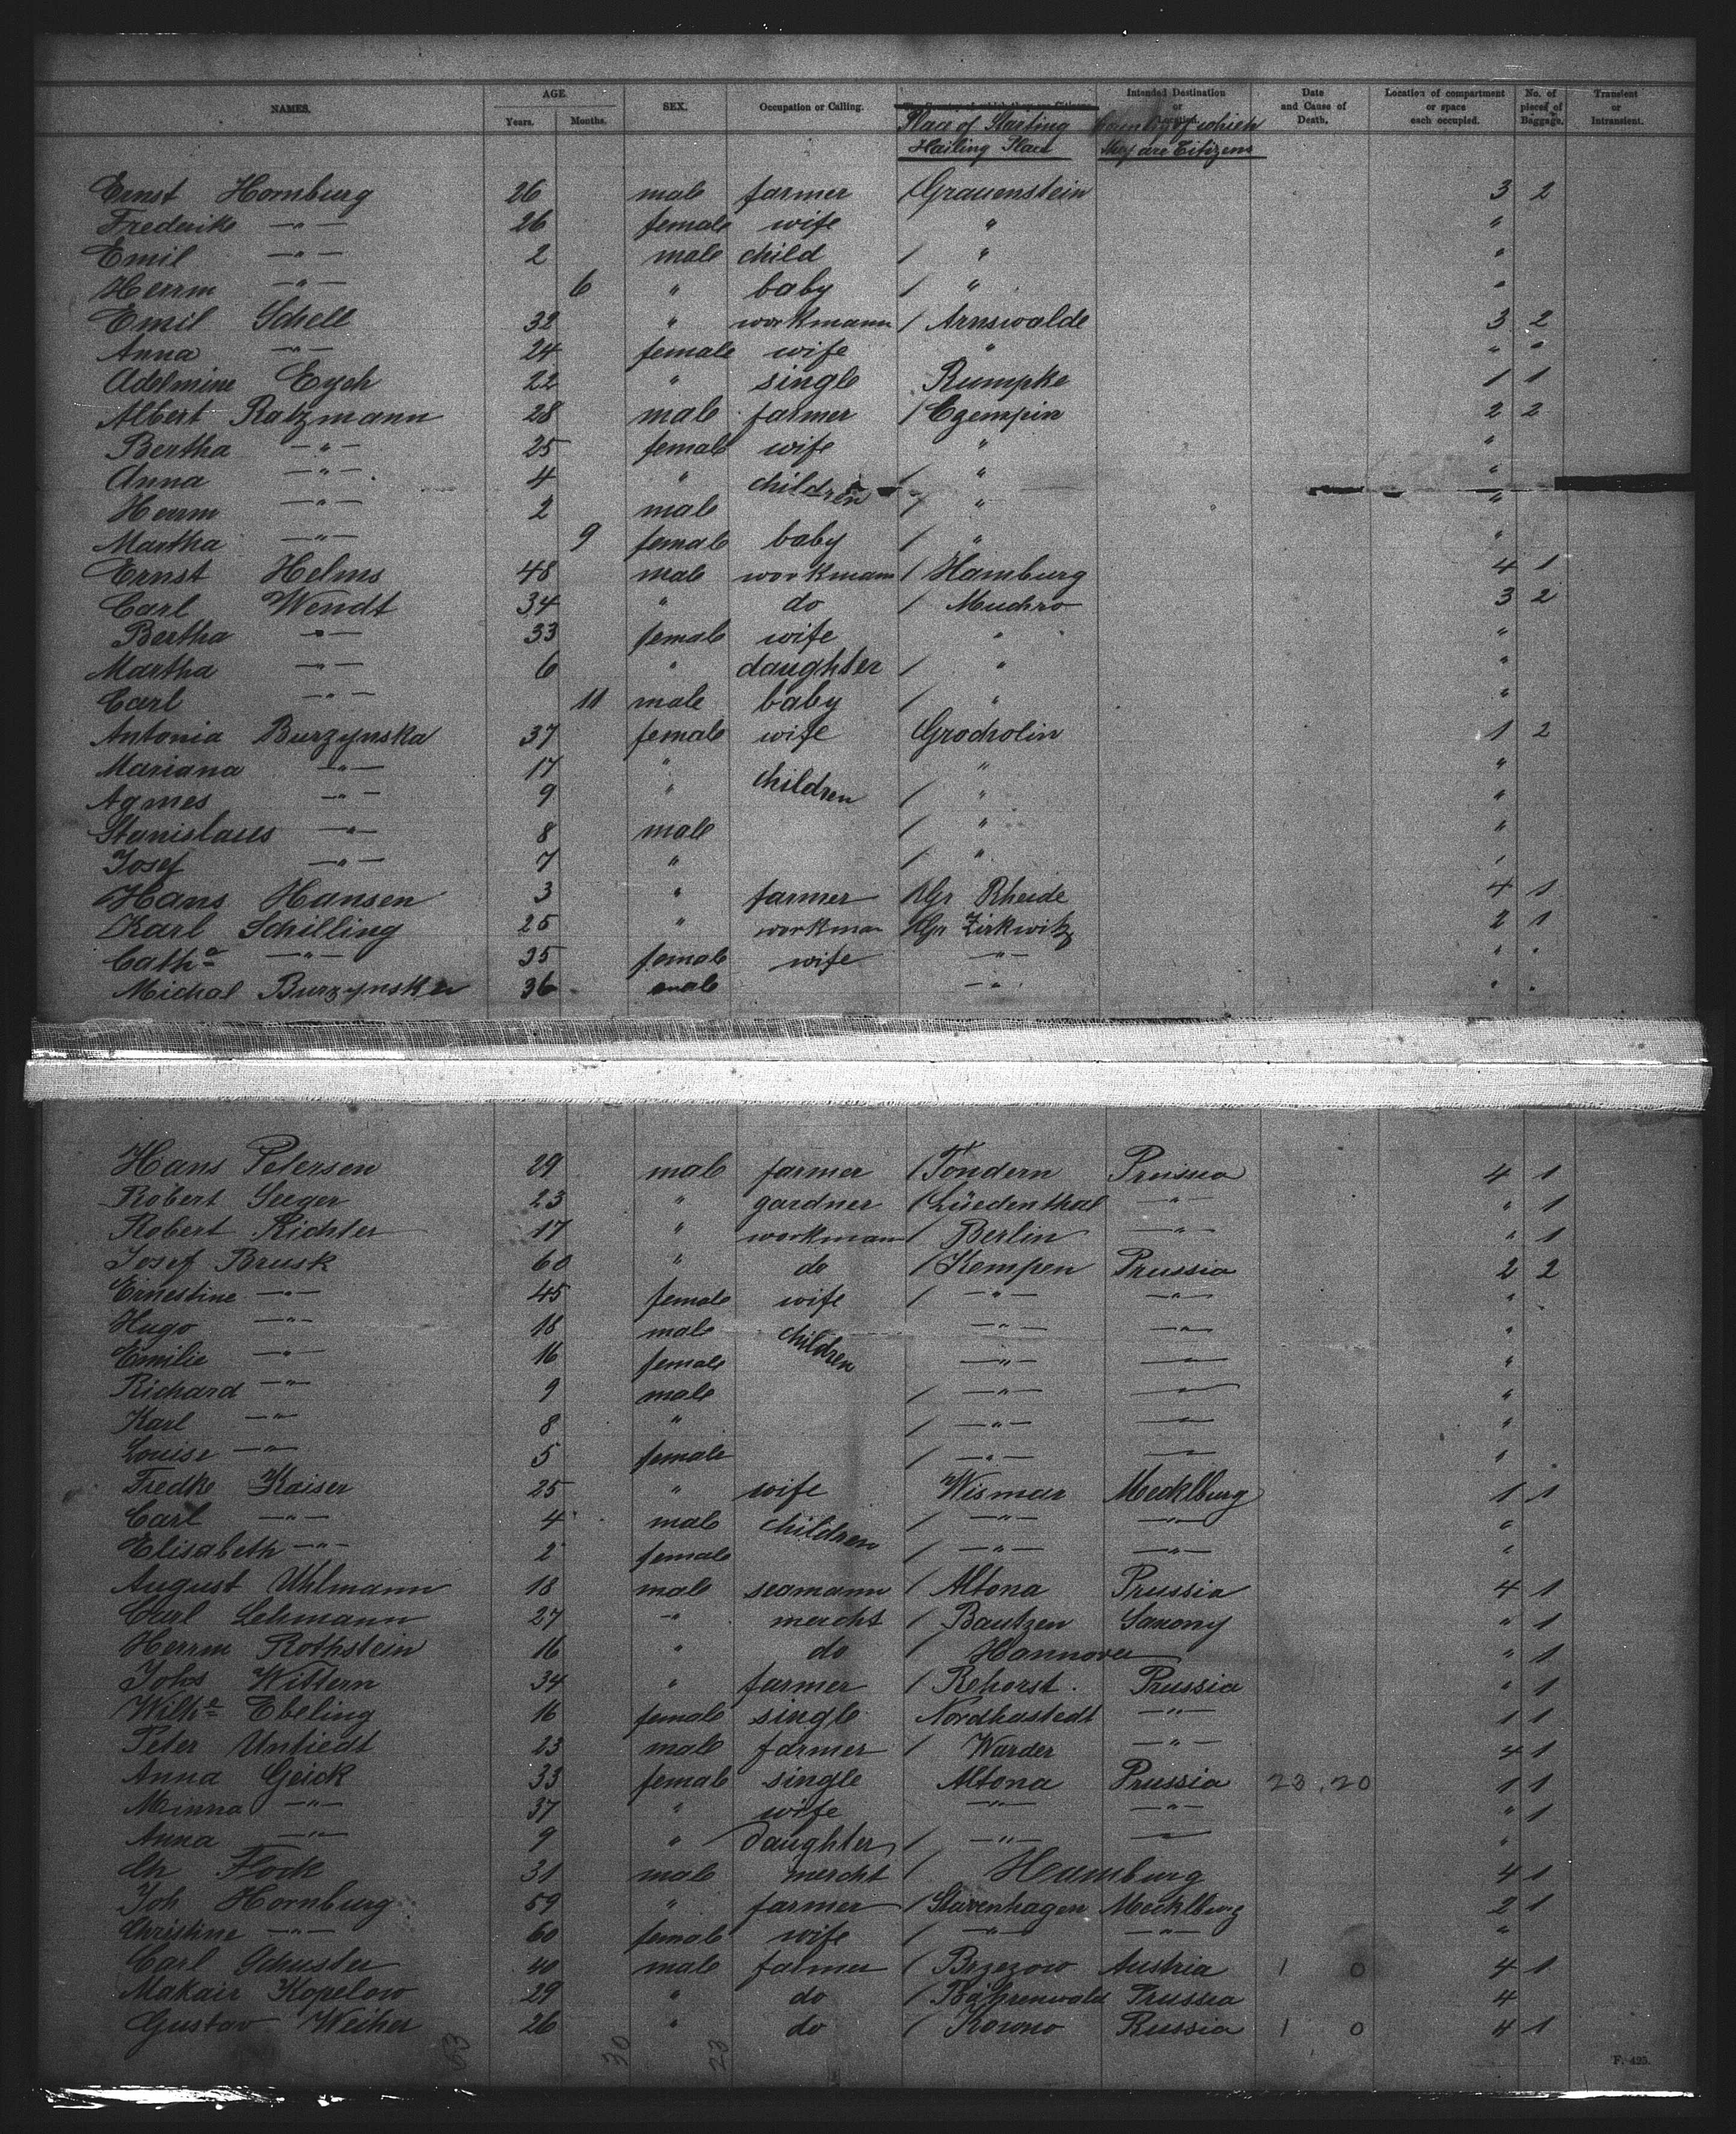 NAMES. AGE. Years. Months. SEX. Occupation or Calling. The Country of which they are Citizens. Intended Destination or Location. Date and Cause of Death. Location of compartment or space each occupied. No. of pieces of Baggage. Transient or Intransient.
Place of Starting Country of which
Hailing Place they are Citizens
Ernst Hornburg 26 male farmer / Grauenstein 3 2
Frederike —"— 26 female wife " "
Emil —"— 2 male child / " "
Herrm —"— 6 " baby / " "
Emil Schell 32 " workmann / Arnswalde 3 2
Anna —"— 24 female wife " " "
Adelmine Eych 22 " single Rumpke 1 1
Albert Ratzmann 28 male farmer / Czempin 2 2
Bertha —"— 25 female wife " "
Anna —"— 4 " children / " "
Herrm —"— 2 male / " "
Martha —"— 9 female baby / " "
Ernst Helms 48 male workmann / Hamburg 4 1
Carl Wendt 34 " do / Muchro 3 2
Bertha —"— 33 female wife " "
Martha —"— 6 " daughter / " "
Carl —"— 11 male baby / " "
Antonia Burzynska 37 female wife Grocholin 1 2
Mariana —"— 17 " children " "
Agnes —"— 9 " / " "
Stanislaus —"— 8 male / " "
Josef —"— 7 " / " "
Hans Hansen 3 " farmer / Gr Rheide 4 1
Karl Schilling 25 " workman / Gr Zirkwitz 2 1
Cath<sup>a</sup> —"— 35 female wife —"— " "
Michal Burzynsker 36 male —"— " "
Hans Petersen 29 male farmer / Tondern Prussia 4 1
Robert Seeger 23 " gardner / Lüedenthal —"— " 1
Robert Richter 17 " workmann / Berlin —"— " 1
Josef Brusk 60 " do / Kempen Prussia 2 2
Ernestine —"— 45 female wife / —"— —"— "
Hugo —"— 18 male children —"— —"— "
Emilie —"— 16 female —"— —"— "
Richard —"— 9 male / —"— —"— "
Karl —"— 8 " / —"— —"— "
Louise —"— 5 female / —"— —"— "
Fredke Kaiser 25 " wife Wismar Mecklburg 1 1
Carl —"— 4 male children / —"— —"— "
Elisabeth —"— 2 female / —"— —"— "
August Uhlmann 18 male seamann / Altona Prussia 4 1
Carl Lehmann 27 —"— mercht / Bautzen Saxony " 1
Herrm Rothstein 16 " do / Hannover " 1
Johs Wittern 34 " farmer / Rehorst. Prussia " 1
Wilh<sup>e</sup> Ebeling 16 female single Nordhastedt —"— 1 1
Peter Untiedt 23 male farmer / Warder —"— 4 1
Anna Geick 33 female single Altona Prussia 23.20 1 1
Minna —"— 37 " wife —"— —"— " 1
Anna —"— 9 " daughter / —"— —"— "
Ch Flock 31 male mercht / Hamburg 4 1
Joh Hornburg 59 " farmer / Stavenhagen Mecklburg 2 1
Christine —"— 60 female wife / —"— —"— "
Carl Schuster 40 male farmer / Brzezow Austria 1 0 4 1
Makair Kopelow 29 " do / Bährenwald Prussia 4
Gustav Weiher 26 " do / Kowno Russia 1 0 4 1
63 30 23
F. 425.